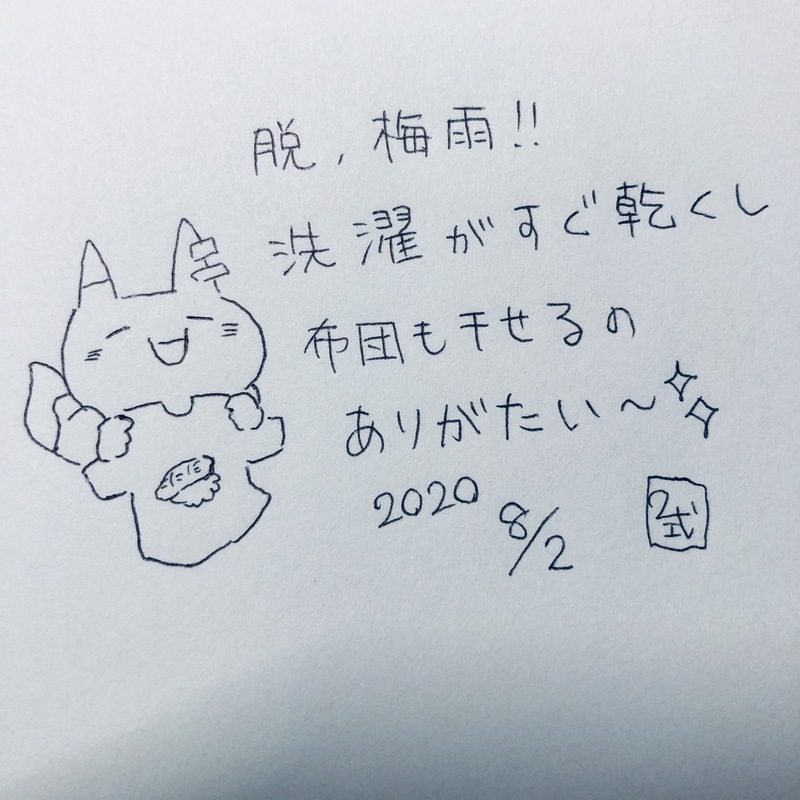 脱，梅雨!!
洗濯がすぐ乾くし
布団も干せるの
ありがたい〜
2020 8/2
2式